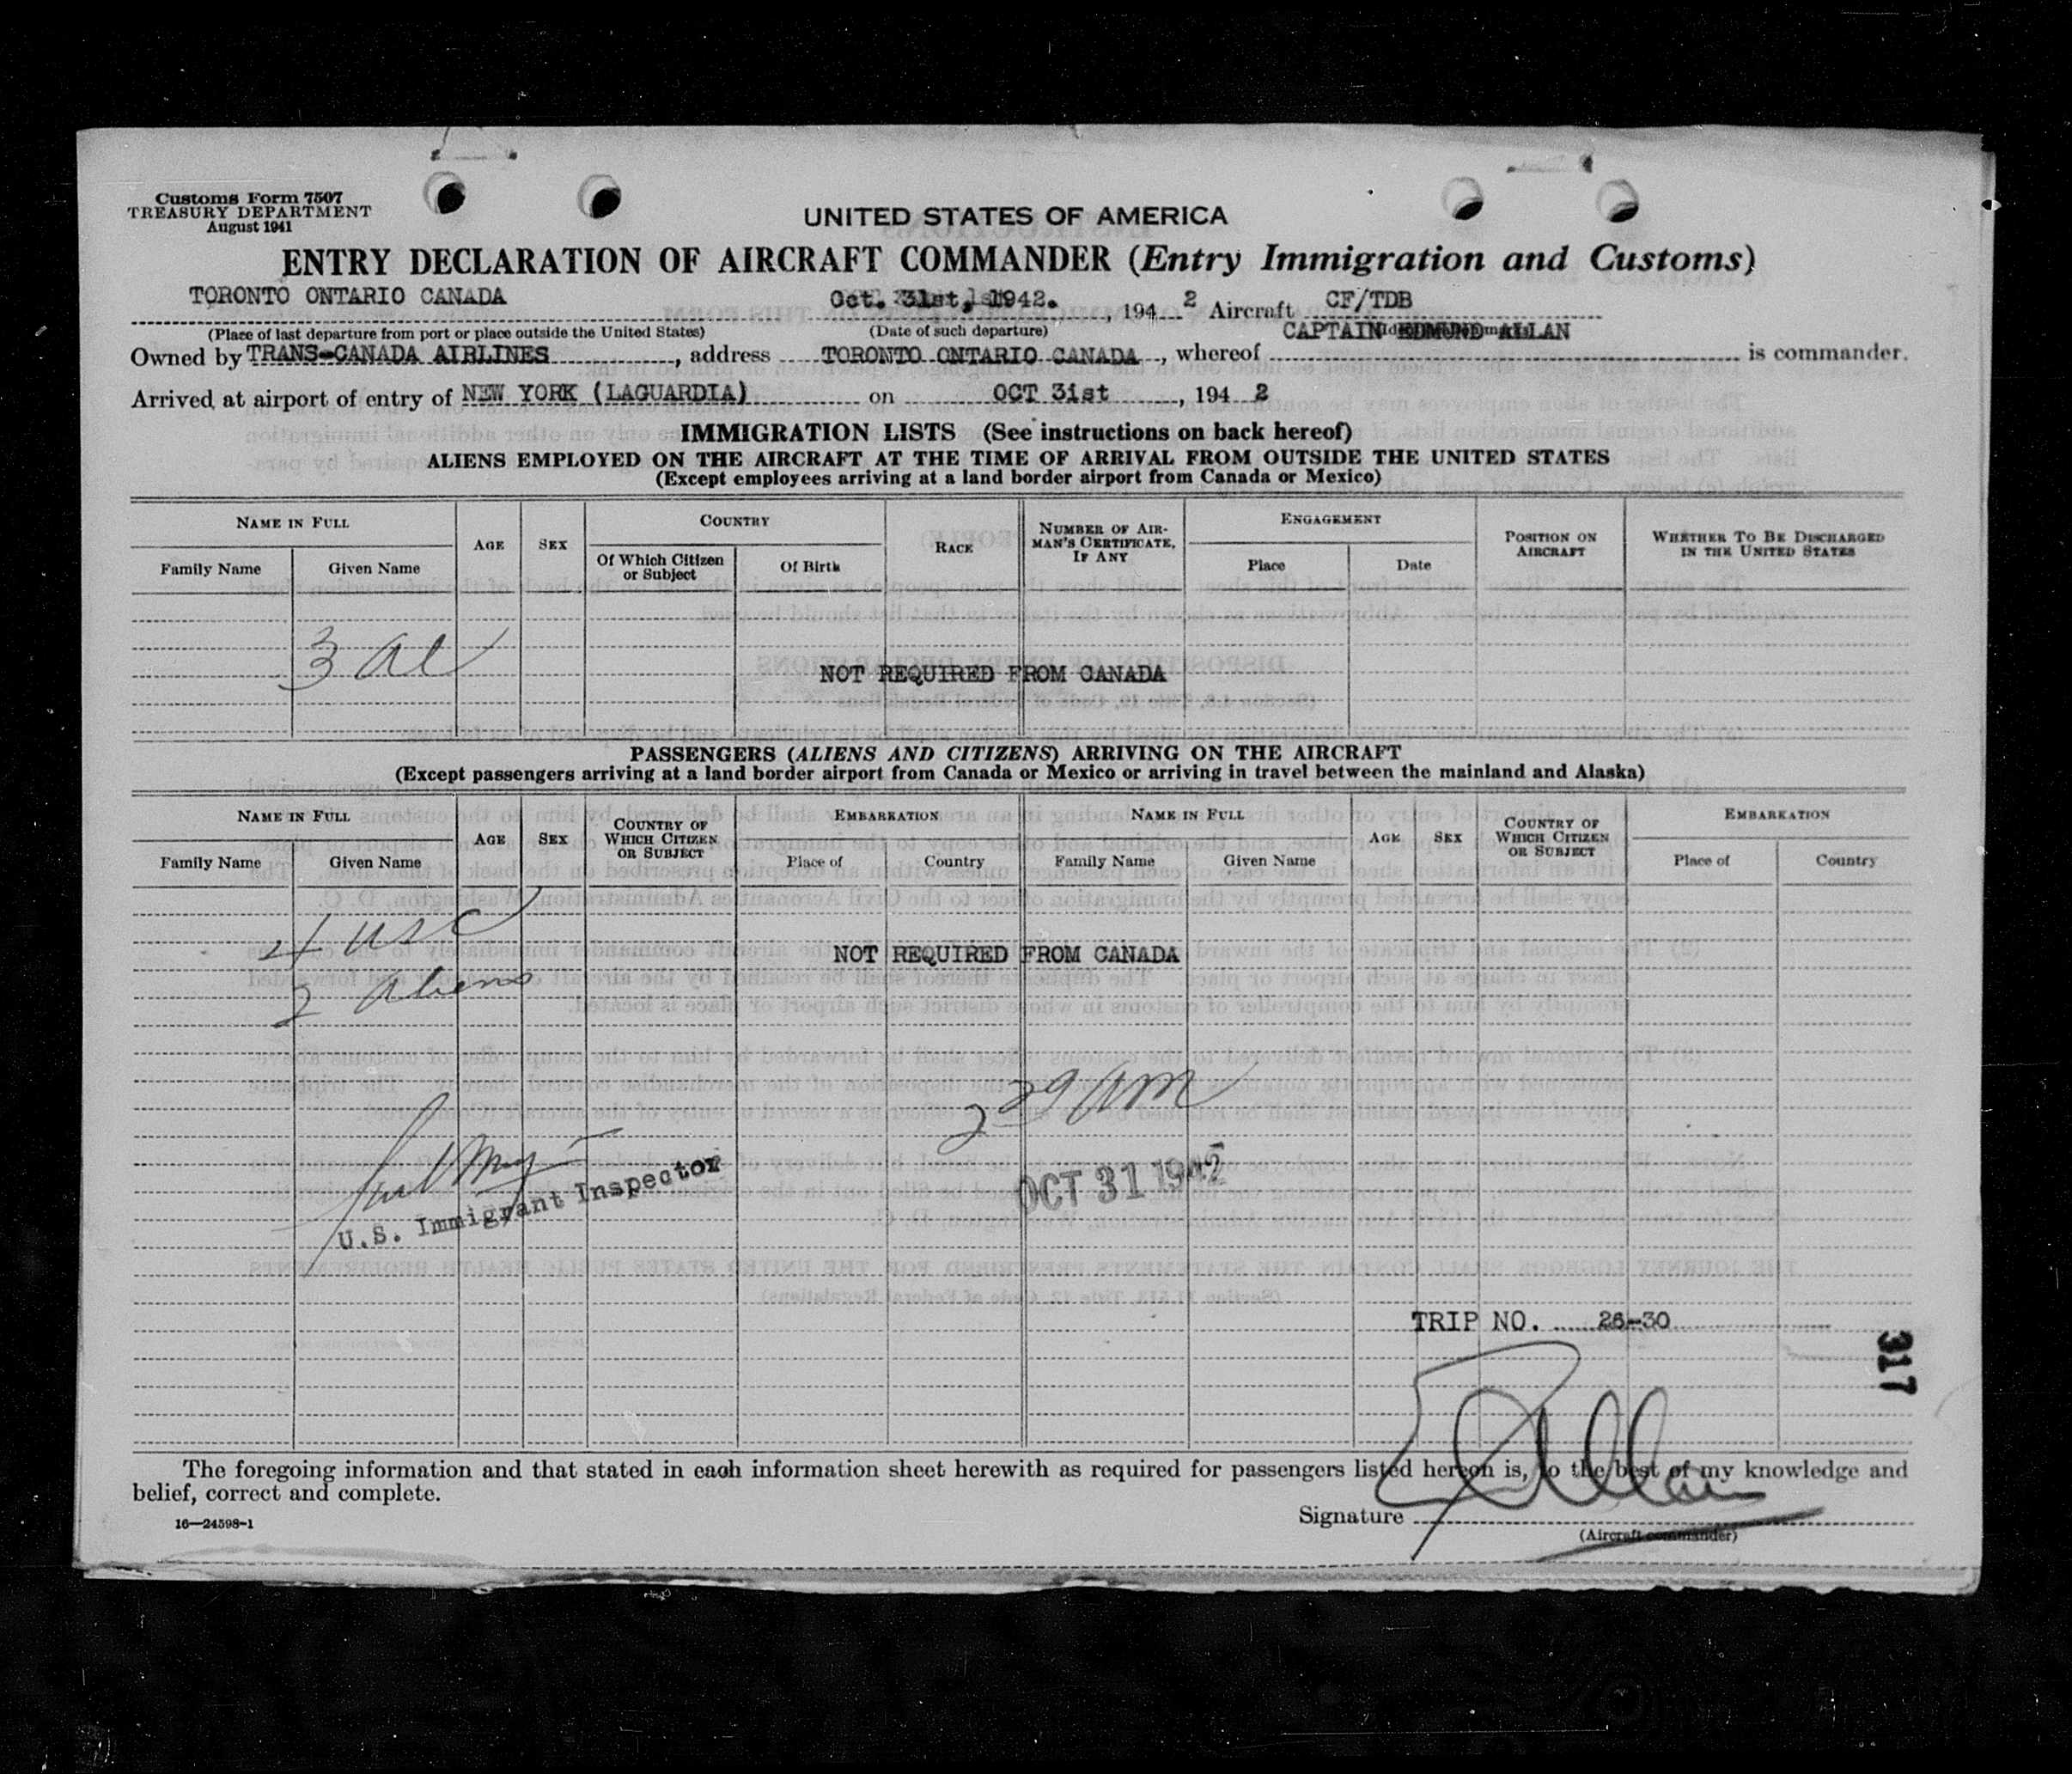 Customs Form 7507
TREASURY DEPARTMENT
August 1941
UNITED STATES OF AMERICA
ENTRY DECLARATION OF AIRCRAFT COMMANDER (Entry Immigration and Customs)
TORONTO ONTARIO CANADA Oct. 31st, 1942. , 194 2 Aircraft CF/TDB
(Place of last departure from port or place outside the United States) (Date of such departure)
CAPTAIN EDMUND ALLAN
Owned by TRANS-CANADA AIRLINES , address TORONTO ONTARIO CANADA , whereof is commander.
Arrived at airport of entry of NEW YORK (LAGUARDIA) on OCT 31st , 194 2
IMMIGRATION LISTS (See instructions on back hereof)
ALIENS EMPLOYED ON THE AIRCRAFT AT THE TIME OF ARRIVAL FROM OUTSIDE THE UNITED STATES
(Except employees arriving at a land border airport from Canada or Mexico)
NAME IN FULL
Family Name Given Name
AGE
SEX
COUNTRY
Of Which Citizen or Subject
Of Birth
RACE
NUMBER OF AIR-
MAN'S CERTIFICATE,
IF ANY
ENGAGEMENT
Place Date
POSITION ON
AIRCRAFT
WHETHER TO BE DISCHARGED
IN THE UNITED STATES
3 al
NOT REQUIRED FROM CANADA
PASSENGERS (ALIENS AND CITIZENS) ARRIVING ON THE AIRCRAFT
(Except passengers arriving at a land border airport from Canada or Mexico or arriving in travel between the mainland and Alaska)
NAME IN FULL
Family Name Given Name
AGE
SEX
COUNTRY OF
WHICH CITIZEN
OR SUBJECT
EMBARKATION
Place of Country
NAME IN FULL
Family Name Given Name
AGE
SEX
COUNTRY OF
WHICH CITIZEN
OR SUBJECT
EMBARKATION
Place of Country
4 USC
2 Aliens
NOT REQUIRED FROM CANADA
AM
OCT 31 1942
U.S. Immigrant Inspector
TRIP NO. 26-30
317
The foregoing information and that stated in each information sheet herewith as required for passengers listed hereon is, to the best of my knowledge and
belief, correct and complete.
Signature E Allan
(Aircraft commander)
16—24598-1